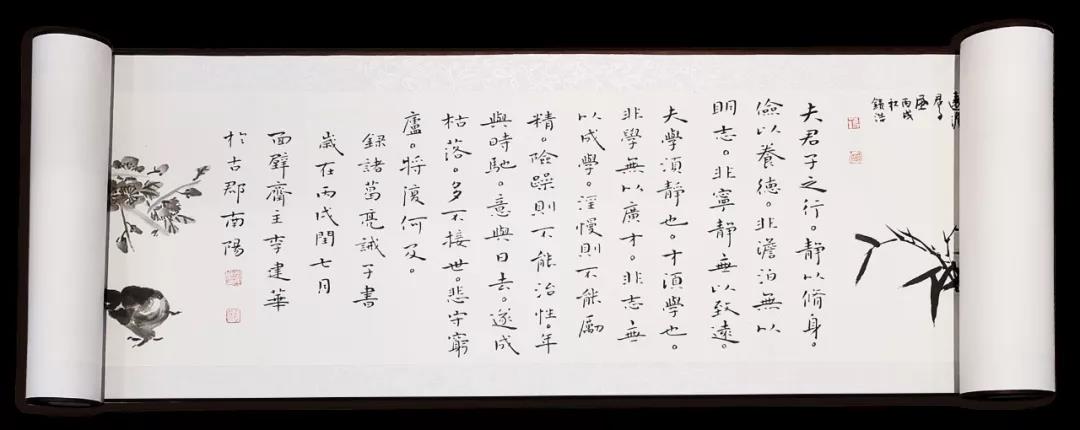 丙戌
秋
夫君子之行。靜以脩身。
儉以養德。非澹泊無以
眀志。非寧靜無以致遠。
夫學須靜也。才須學也。
非學無以廣才。非志無
以成學。淫慢則不能勵
精。險躁則不能治性。年
與時馳。意與日去。遂成
枯落。多不接世。悲守窮
廬。將復何及。
錄諸葛亮誡子書
歲在丙戌閏七月
面壁齋主李建華
於古郡南陽